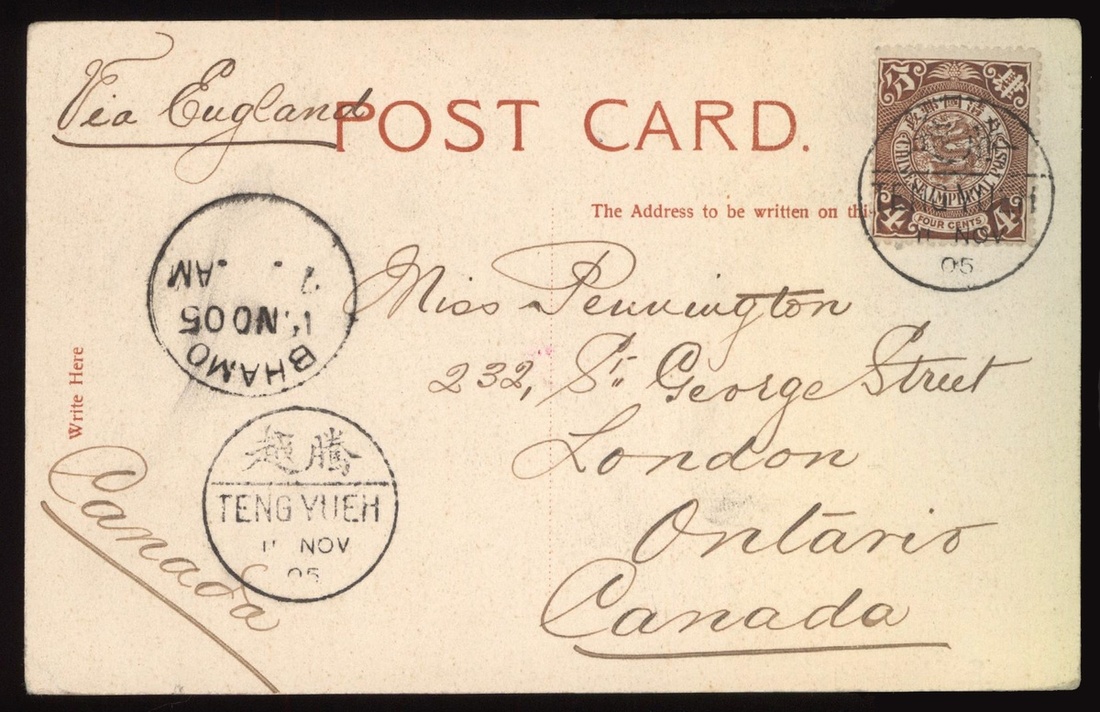 Via England
POST CARD.
The Address to be written on thi
CHINESE IMPERIAL POST
FOUR CENTS
4 4
11 NOV
05
Miss Pennington
232, St. George Street
London
Ontario
Canada
AM
NO 05
BHAMO
Write Here
騰越
TENG YUEH
11 NOV
05
Canada